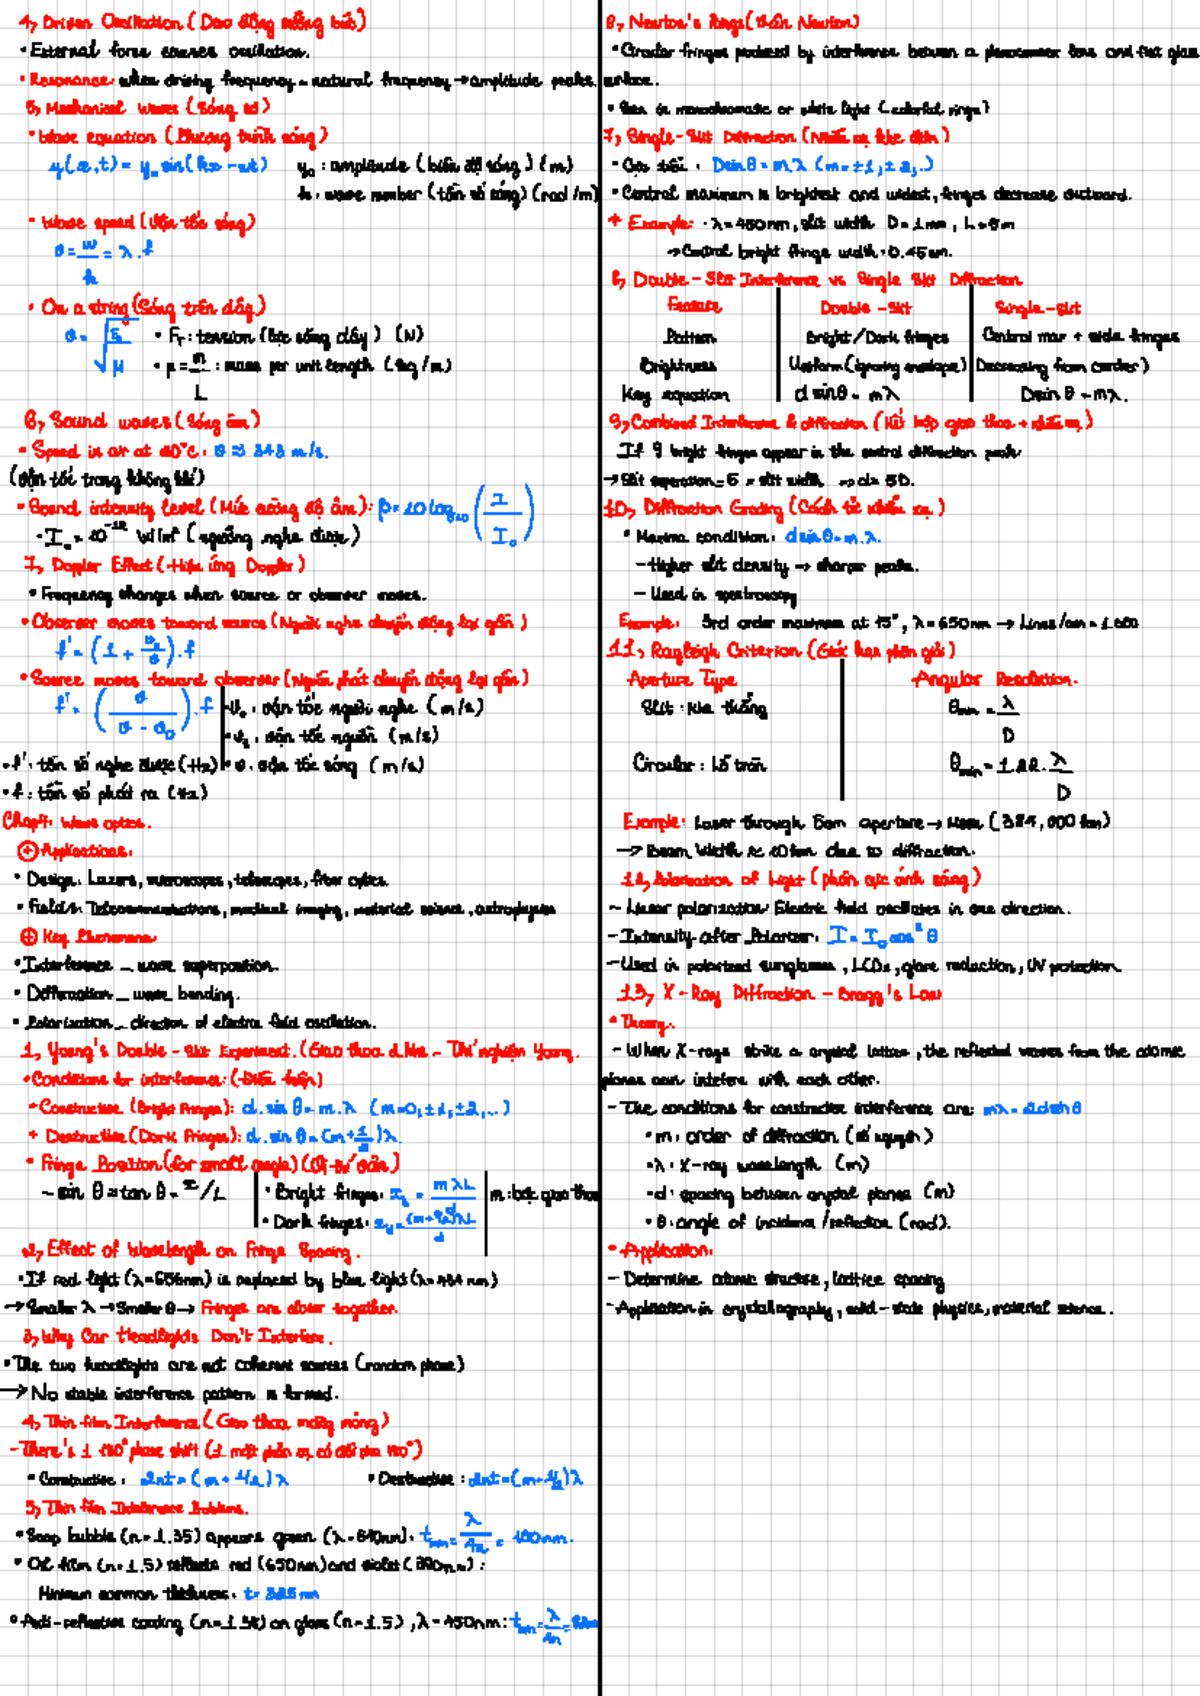 4, Driven Oscillation (Dao động cưỡng bức)
• External force causes oscillation.
• Resonance when driving frequency = natural frequency → amplitude peaks.
5, Mechanical Waves (Sóng cơ)
• Wave equation (Phương trình sóng)
y(x,t) = y₀ sin(kx - ωt) y₀ : amplitude (biên độ sóng) (m)
k : wave number (tần số sóng) (rad/m)
• Wave speed (Vận tốc sóng)
v = ω/k = λ.f
• On a string (Sóng trên dây)
v = √(F_T/μ) • F_T : tension (lực căng dây) (N)
• μ = m/L : mass per unit length (kg/m)
6, Sound waves (Sóng âm)
• Speed in air at 20°C : v ≈ 343 m/s.
(vận tốc trong không khí)
• Sound intensity level (Mức cường độ âm) : β = 10 log₁₀ (I/I₀)
• I₀ = 10⁻¹² W/m² (ngưỡng nghe được)
7, Doppler Effect (Hiệu ứng Doppler)
• Frequency changes when source or observer moves.
• Observer moves toward source (Người nghe chuyển động lại gần)
f' = (1 + v₀/v).f
• Source moves toward observer (Nguồn phát chuyển động lại gần)
f' = (v/(v - v₀)).f
• v₀ : vận tốc người nghe (m/s)
• vₛ : vận tốc nguồn (m/s)
• f' : tần số nghe được (Hz) • v : vận tốc sóng (m/s)
• f : tần số phát ra (Hz)
Chap4: Wave optics.
⊕ Applications:
• Design: Lazers, microscopes, telescopes, fiber optics.
• Fields: Telecommunications, medical imaging, material science, astrophysics
⊕ Key Phenomena
• Interference _ wave superposition.
• Diffraction _ wave bending.
• Polarization _ direction of electric field oscillation.
1, Young's Double-Slit Experiment. (Giao thoa 2 khe - Thí nghiệm Young.
• Conditions for interference: (Điều kiện)
+ Constructive (Bright Fringes): d.sin θ = m.λ (m=0,±1,±2,..)
+ Destructive (Dark Fringes): d.sin θ = (m+1/2)λ
• Fringe Position (for small angle) (Vị trí vân)
- sin θ ≈ tan θ = x/L • Bright fringes: = mλL/d m: bậc giao thoa
• Dark fringes: = (m+1/2)λL/d
2, Effect of Wavelength on Fringe Spacing.
• If red light (λ=656nm) is replaced by blue light (λ=434 nm)
→ Smaller λ → Smaller θ → Fringes are closer together.
3, Why Car Headlights Don't Interfere.
• The two headlights are not coherent sources (random phase)
→ No stable interference pattern is formed.
4, Thin film Interference (Giao thoa màng mỏng)
- There's 1 180° phase shift (1 mặt phản xạ có đổi pha 180°)
• Constructive : 2nt = (m + 1/2)λ • Destructive :
5, Thin film Interference Problems.
• Soap bubble (n=1.35) appears green (λ=540nm): t_min = λ/4n = 100nm.
• Oil film (n=1.5) reflects red (650nm) and violet (390nm) :
Minimum common thickness: t= 325 nm
• Anti-reflective coating (n=1.38) on glass (n=1.5), λ=450nm: t_min = λ/4n
6, Newton's Rings (Vân Newton)
• Circular fringes produced by interference between a planoconvex lens and flat glass
surface.
• Seen in monochromatic or white light (colorful rings)
7, Single-Slit Diffraction (Nhiễu xạ khe đơn)
• Cực tiểu : D sin θ = m.λ (m=±1,±2,.)
• Central maximum is brightest and widest, fringes decrease outward.
+ Example: • λ=450nm, slit width D=1mm, L=5m
→ Central bright fringe width: 0.45cm.
8, Double-Slit Interference vs Single Slit Diffraction
Feature Double-Slit Single-slit
Pattern Bright/Dark fringes Central max + side fringes
Brightness Uniform (ignoring envelope) Decreasing from center)
Key equation d sin θ = mλ D sin θ = mλ.
9, Combined Interference & diffraction (Kết hợp giao thoa + nhiễu xạ)
If 9 bright fringes appear in the central diffraction peak:
→ Slit separation = 5 × slit width → d = 5D.
10, Diffraction Grating (Cách tử nhiễu xạ)
• Maxima condition: d sin θ = m.λ.
- Higher slit density → sharper peaks.
- Used in spectroscopy
Example: 3rd order maximum at 15°, λ=650nm → Lines/cm =
11, Rayleigh Criterion (Giới hạn phân giải)
Aperture Type Angular Resolution.
Slit : Khe thẳng θ_min = λ/D
Circular : Lỗ tròn θ_min = 1.22.λ/D
Example: Laser through 5cm aperture → Moon (384,000 km)
→ Beam Width ≈ 10 km due to diffraction.
12, Polarization of Light (phân cực ánh sáng)
- Linear polarization: Electric field oscillates in one direction.
- Intensity after Polarizer: I = I₀ cos² θ
- Used in polarized sunglasses, LCDs, glare reduction, UV protection.
13, X-Ray Diffraction - Bragg's Law
• Theory:
- When X-rays strike a crystal lattice, the reflected waves from the atomic
planes can intefere with each other.
- The conditions for constructive interference are: mλ = 2d sin θ
• m: order of diffraction (số nguyên)
• λ: X-ray wavelength (m)
• d: spacing between crystal planes (m)
• θ: angle of incidence/reflection (rad).
• Application:
- Determine atomic structure, lattice spacing
- Application in crystallography, solid-state physics, material science.